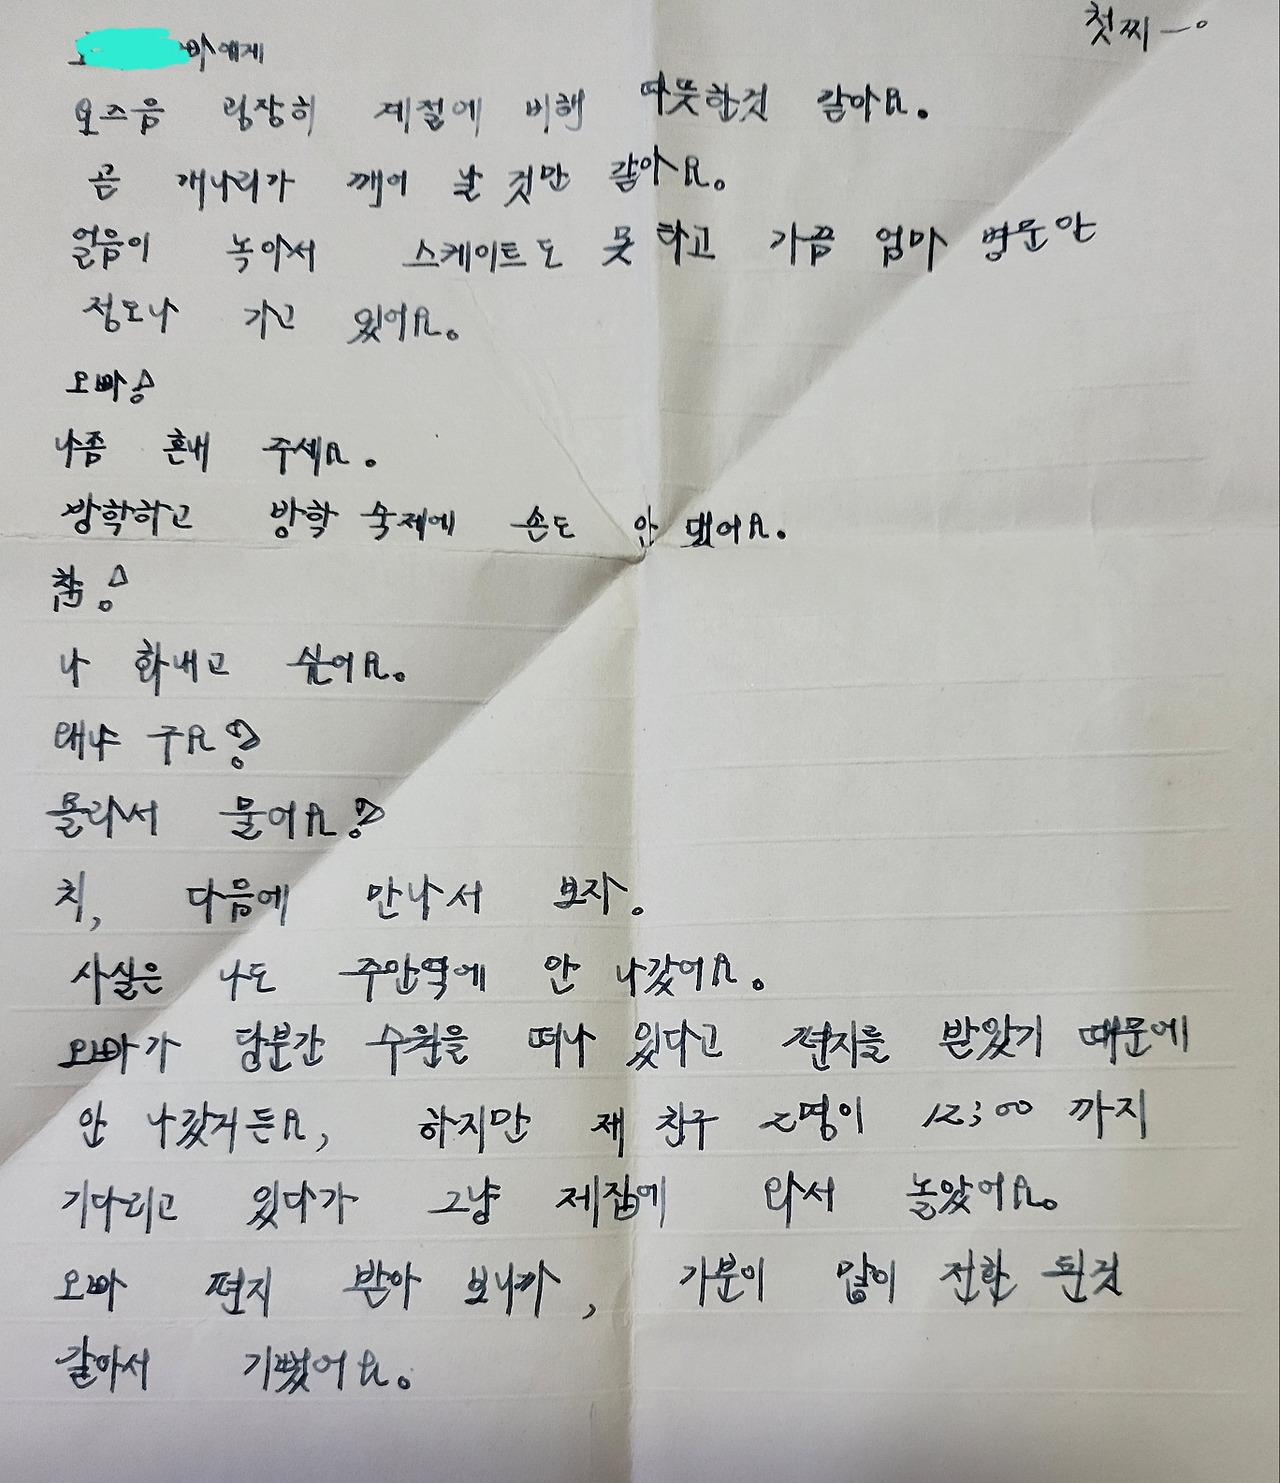 첫찌
에게
요즈음 굉장히 계절에 비해 따뜻한것 같아요.
곧 개나리가 깨어 날 것만 같아요.
얼음이 녹아서 스케이트도 못 하고 가끔 엄마 병문안
정도나 가고 있어요.
오빠!
나좀 혼내 주세요.
방학하고 방학 숙제에 손도 안 댔어요.
참!
나 화내고 싶어요.
왜냐 구요?
몰라서 물어요?
치, 다음에 만나서 보자.
사실은 나도 주안역에 안 나갔어요.
오빠가 당분간 수원을 떠나 있다고 편지를 받았기 때문에
안 나갔거든요, 하지만 제 친구 2명이 12:00 까지
기다리고 있다가 그냥 제집에 와서 놀았어요.
오빠 편지 받아 보니까, 기분이 많이 전환 된것
같아서 기뻤어요.